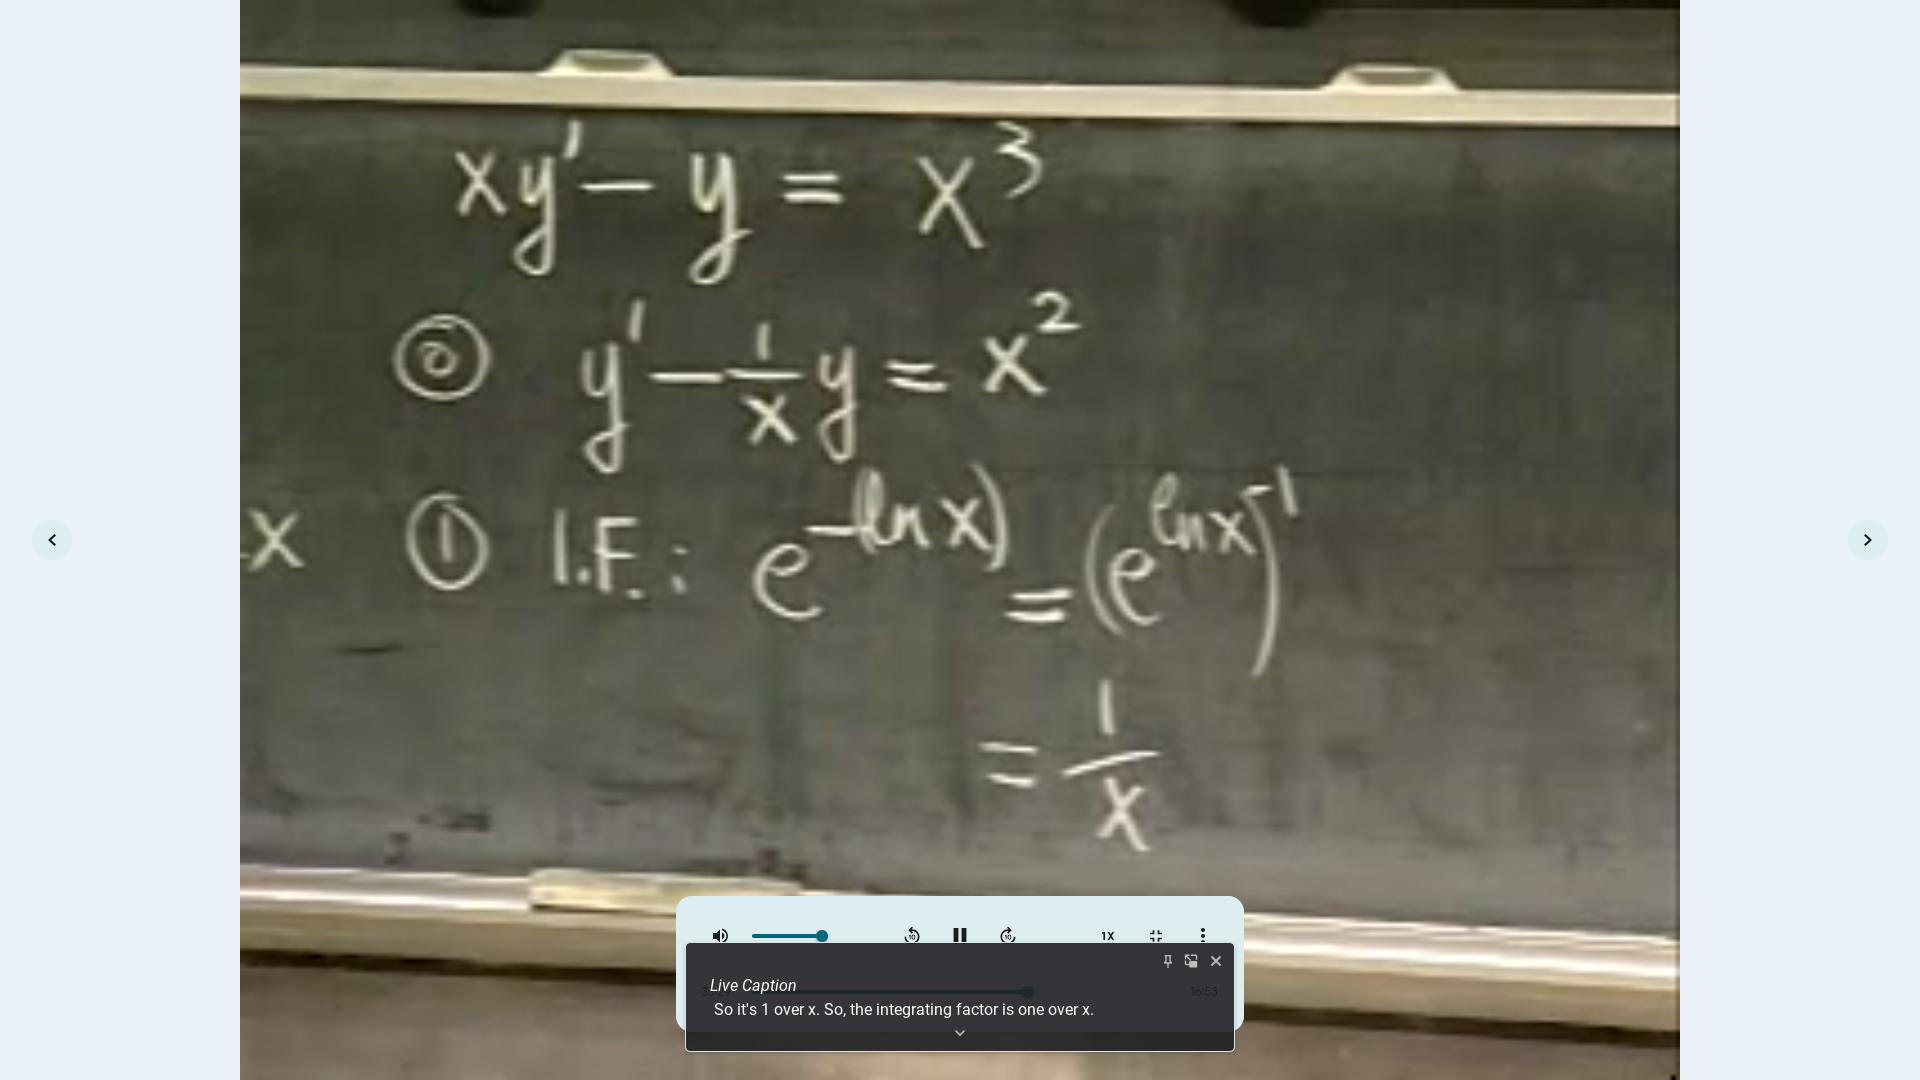 xy' - y = x³
⓪ y' - 1/x y = x²
x ① I.F.: e^-(ln x) = (e^ln x)^-1
= 1/x
1X
Live Caption
16:53
So it's 1 over x. So, the integrating factor is one over x.